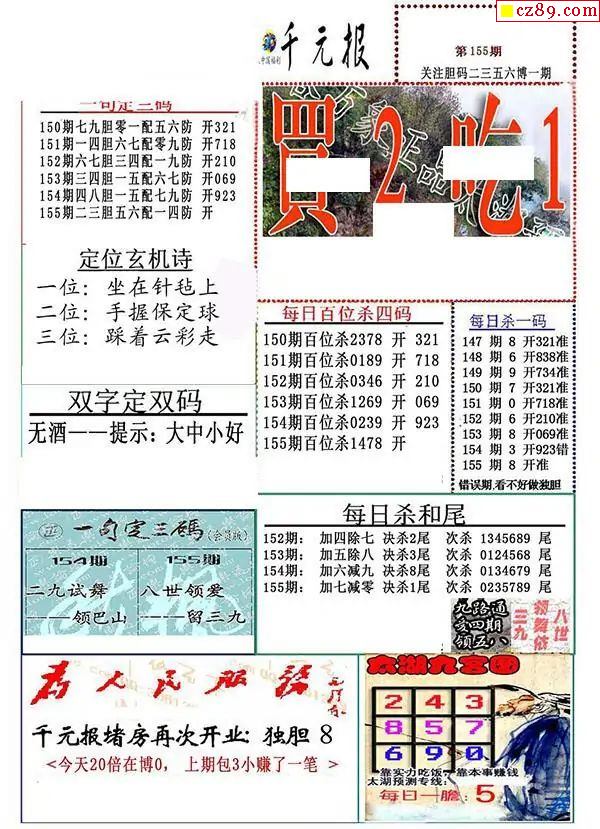 cz89.com
千元报
第155期
关注胆码二三五六博一期
買2吃1
一句定三码
150期七九胆零一配五六防 开321
151期一四胆六七配零九防 开718
152期六七胆三四配一九防 开210
153期三四胆一五配六七防 开069
154期四八胆一五配九七防 开923
155期二三胆五六配一四防 开
定位玄机诗
一位：坐在针毡上
二位：手握保定球
三位：踩着云彩走
每日百位杀四码
150期百位杀2378 开 321
151期百位杀0189 开 718
152期百位杀0346 开 210
153期百位杀1269 开 069
154期百位杀0239 开 923
155期百位杀1478 开
每日杀一码
147 期 8 开321准
148 期 6 开838准
149 期 9 开734准
150 期 7 开321准
151 期 0 开718准
152 期 6 开210准
153 期 8 开069准
154 期 3 开923错
155 期 8 开准
错误期,看不好做独胆
双字定双码
无酒——提示：大中小好
一句定三碼(会员版)
154期
二九试舞
——领巴山
155期
八世领爱
——留三九
每日杀和尾
152期： 加四除七 决杀2尾 次杀 1345689 尾
153期： 加五除八 决杀3尾 次杀 0124568 尾
154期： 加六减九 决杀8尾 次杀 0134679 尾
155期： 加七减零 决杀1尾 次杀 0235789 尾
九路通
亥四期
领五八
八世
领舞依
三九
为人民服务
千元报堵房再次开业：独胆 8
<今天20倍在博0， 上期包3小赚了一笔 >
太湖九宫图
2 4 3
8 5 7
6 9 0
靠实力吃饭 靠本事赚钱
太湖预测专线：
每日一胆：5